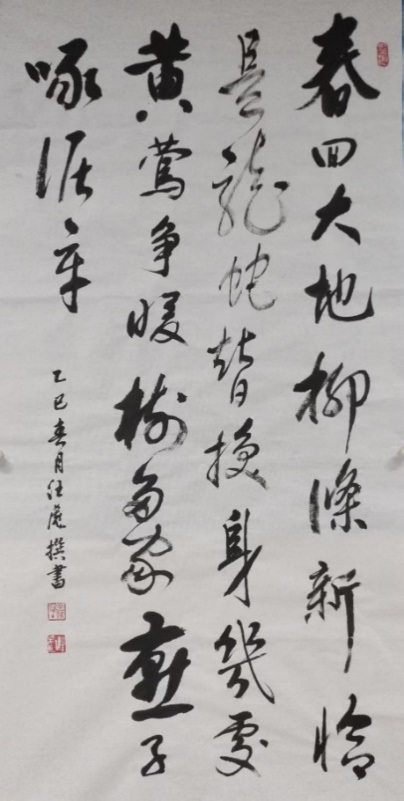 春回大地柳條新恰
是龍蛇替換身幾處
黄鶯争暖樹多家燕子
啄泥辛
乙巳春月撰書